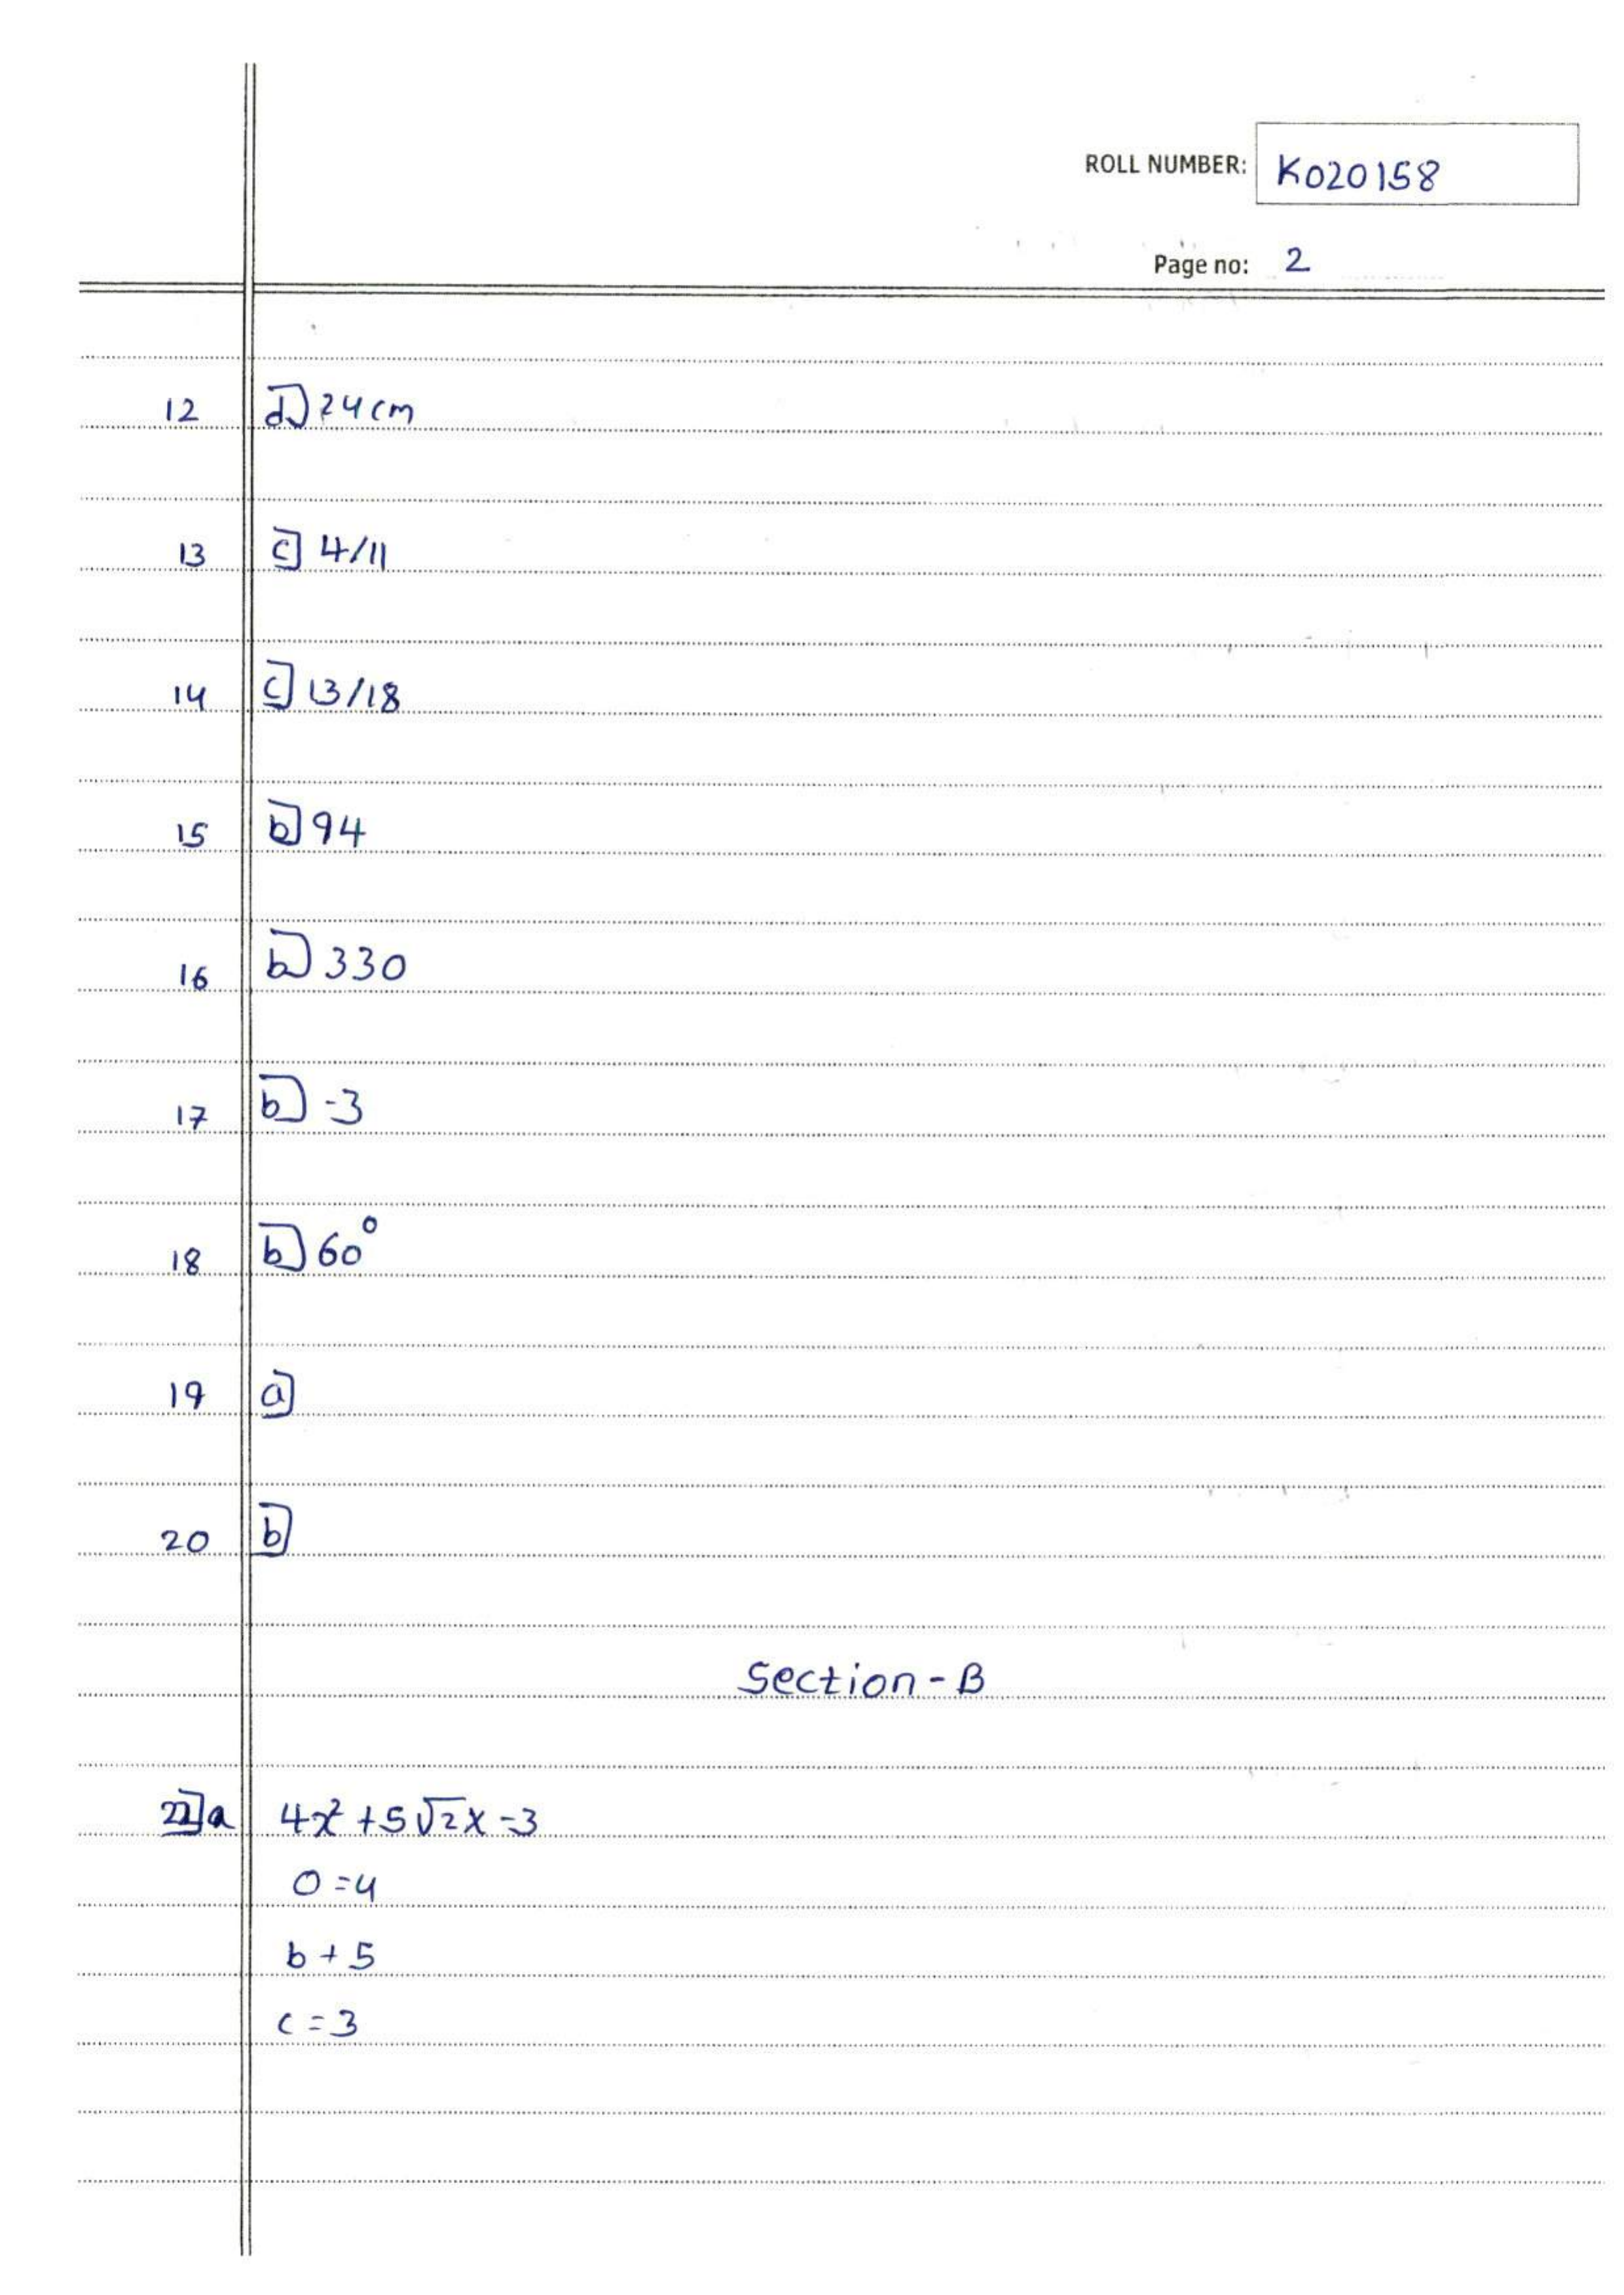 ROLL NUMBER: K020158
Page no: 2
12 d) 24 cm
13 c] 4/11
14 c] 13/18
15 b] 94
16 b) 330
17 b) -3
18 b] 60°
19 a]
20 b]
Section - B
22]a 4x² + 5√2x - 3
0 = 4
b + 5
c = 3